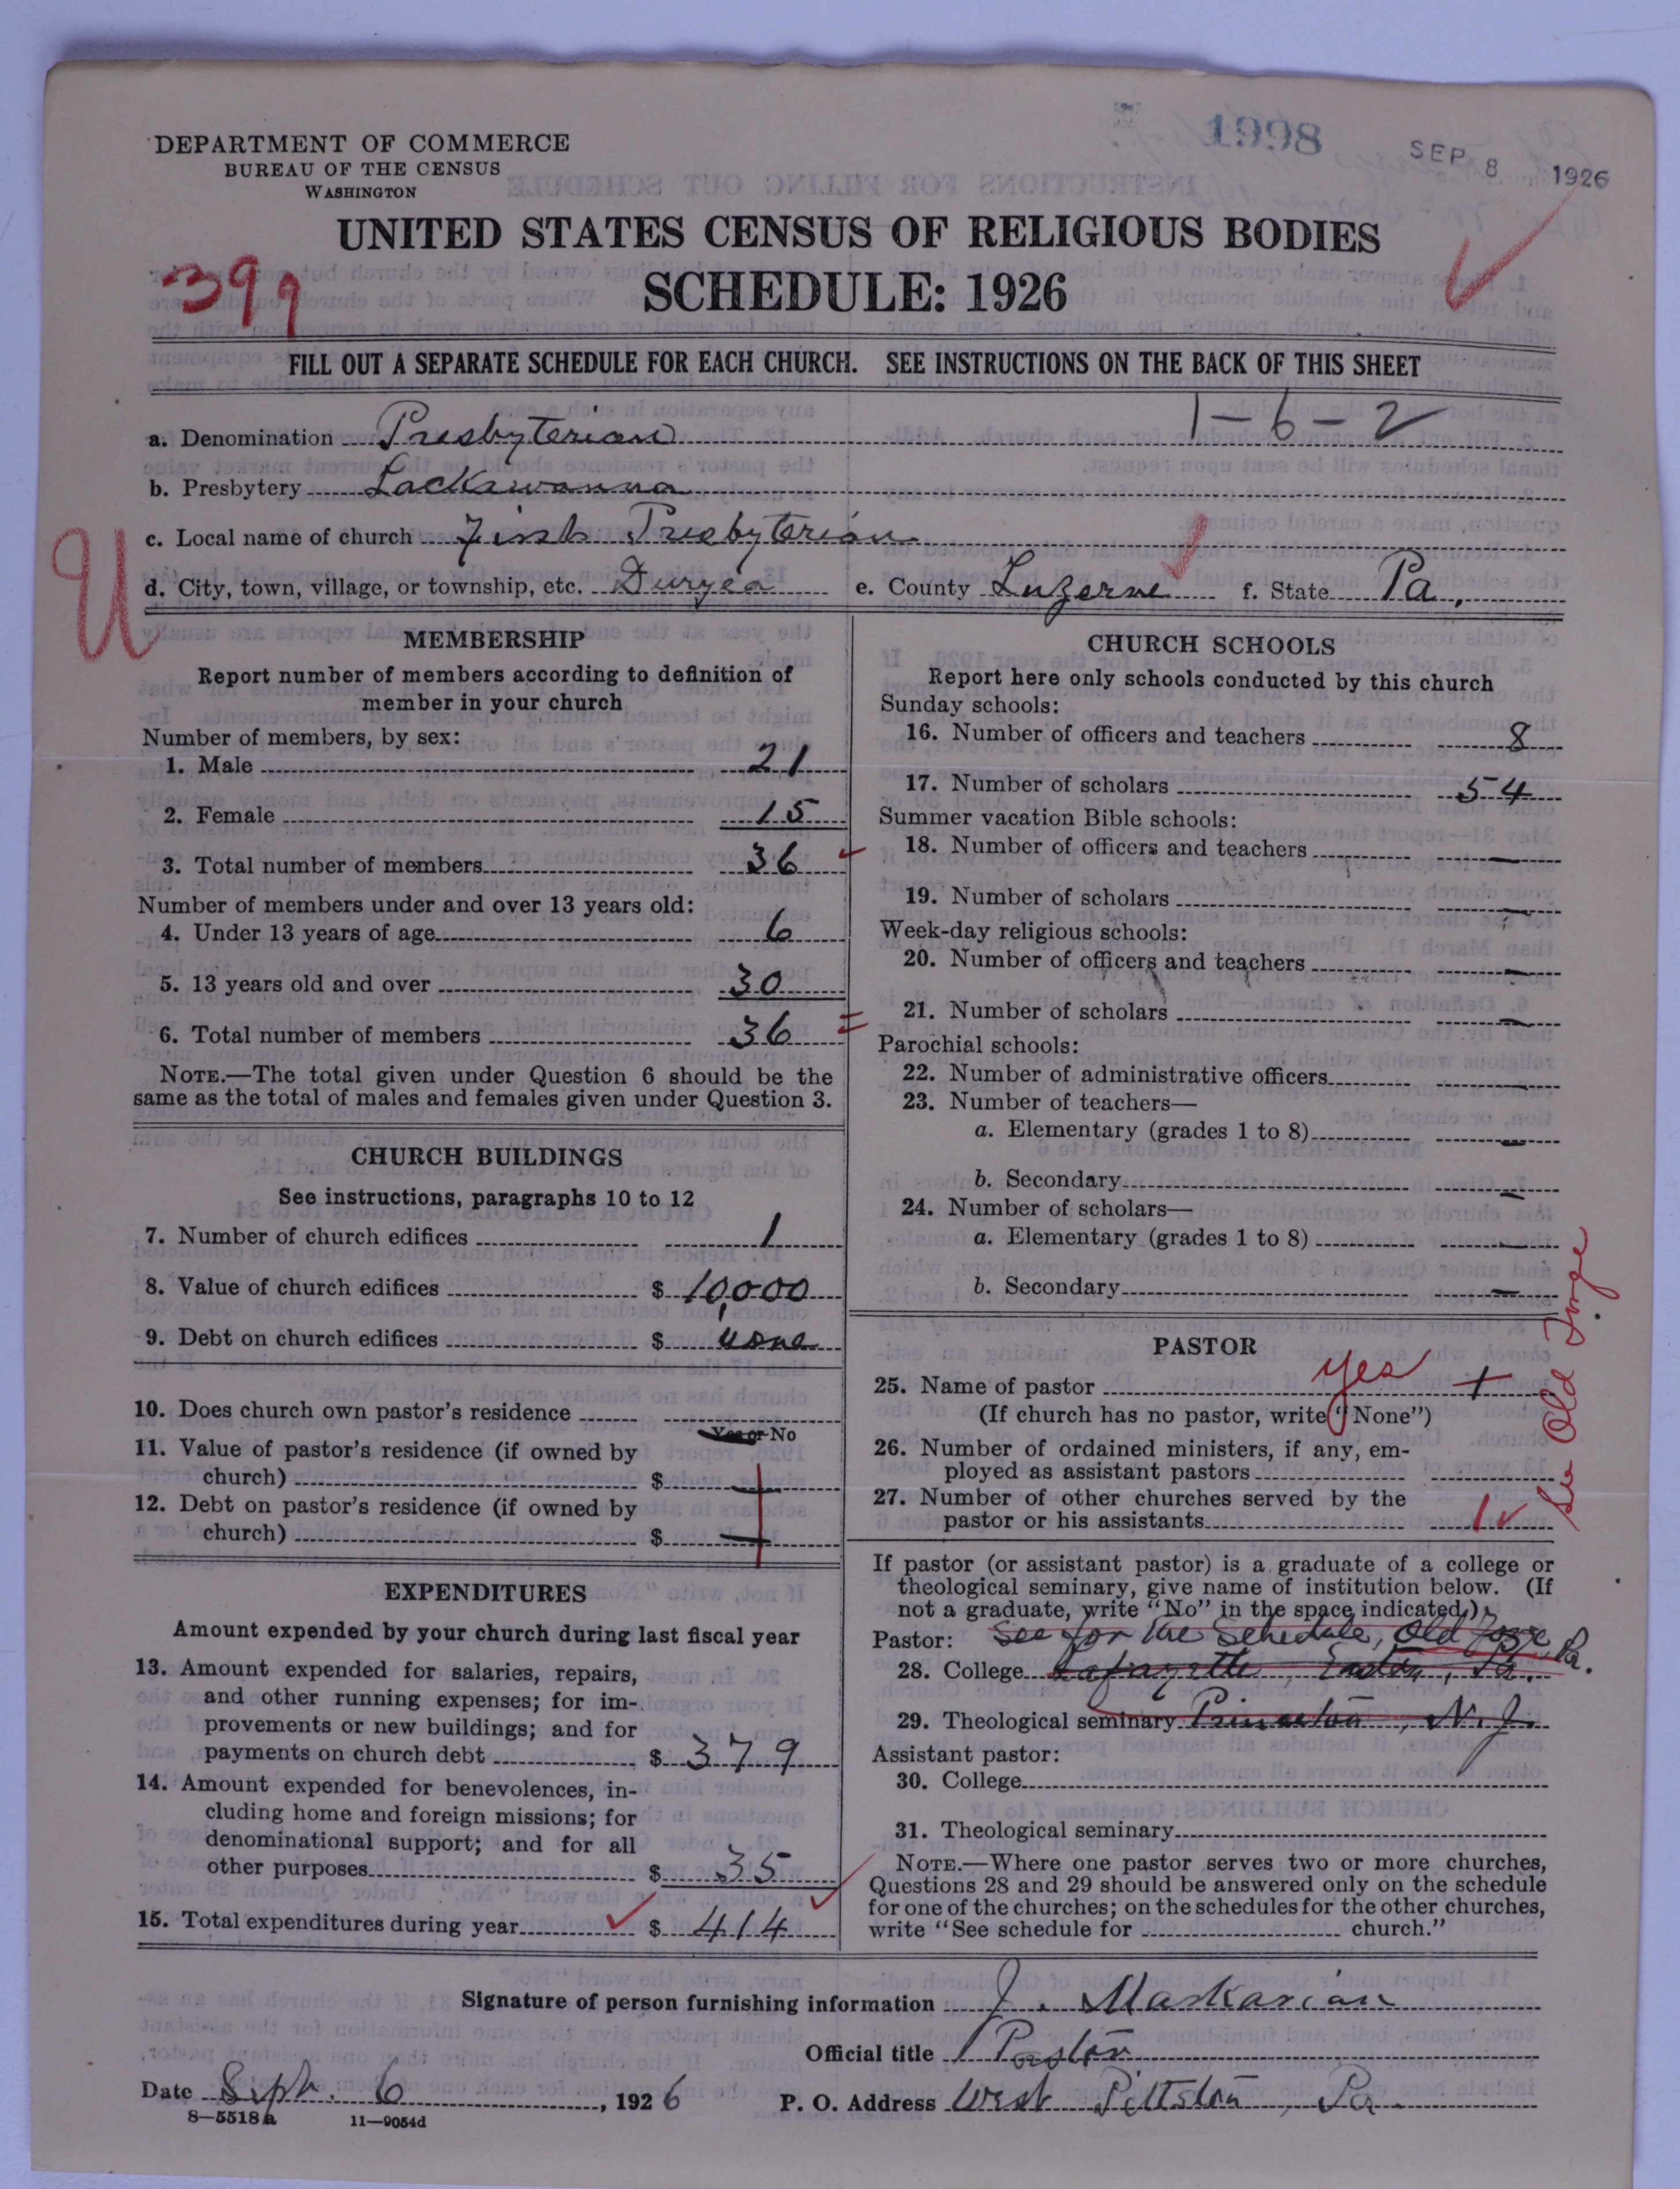 1998
SEP 8 1926
DEPARTMENT OF COMMERCE
BUREAU OF THE CENSUS
WASHINGTON
UNITED STATES CENSUS OF RELIGIOUS BODIES
399
SCHEDULE: 1926
FILL OUT A SEPARATE SCHEDULE FOR EACH CHURCH. SEE INSTRUCTIONS ON THE BACK OF THIS SHEET
1-6-2
a. Denomination Presbyterian
b. Presbytery Lackawanna
c. Local name of church First Presbyterian
U
d. City, town, village, or township, etc. Duryea e. County Luzerne f. State Pa.
MEMBERSHIP
Report number of members according to definition of
member in your church
Number of members, by sex:
1. Male 21
2. Female 15
3. Total number of members 36
Number of members under and over 13 years old:
4. Under 13 years of age 6
5. 13 years old and over 30
6. Total number of members 36
NOTE.—The total given under Question 6 should be the
same as the total of males and females given under Question 3.
CHURCH BUILDINGS
See instructions, paragraphs 10 to 12
7. Number of church edifices 1
8. Value of church edifices $ 10,000
9. Debt on church edifices $ none
10. Does church own pastor's residence
Yes or No
11. Value of pastor's residence (if owned by
church) $ —
12. Debt on pastor's residence (if owned by
church) $ —
EXPENDITURES
Amount expended by your church during last fiscal year
13. Amount expended for salaries, repairs,
and other running expenses; for im-
provements or new buildings; and for
payments on church debt $ 379
14. Amount expended for benevolences, in-
cluding home and foreign missions; for
denominational support; and for all
other purposes $ 35
15. Total expenditures during year $ 414
CHURCH SCHOOLS
Report here only schools conducted by this church
Sunday schools:
16. Number of officers and teachers 8
17. Number of scholars 54
Summer vacation Bible schools:
18. Number of officers and teachers —
19. Number of scholars —
Week-day religious schools:
20. Number of officers and teachers —
21. Number of scholars —
Parochial schools:
22. Number of administrative officers —
23. Number of teachers—
a. Elementary (grades 1 to 8) —
b. Secondary —
24. Number of scholars—
a. Elementary (grades 1 to 8) —
b. Secondary —
PASTOR
25. Name of pastor yes +
(If church has no pastor, write "None")
26. Number of ordained ministers, if any, em-
ployed as assistant pastors
27. Number of other churches served by the
pastor or his assistants 1
See Old Forge
If pastor (or assistant pastor) is a graduate of a college or
theological seminary, give name of institution below. (If
not a graduate, write "No" in the space indicated.)
Pastor: See for the Schedule, Old Forge, Pa.
28. College Lafayette, Easton, Pa.
29. Theological seminary Princeton, N. J.
Assistant pastor:
30. College
31. Theological seminary
NOTE.—Where one pastor serves two or more churches,
Questions 28 and 29 should be answered only on the schedule
for one of the churches; on the schedules for the other churches,
write "See schedule for church."
Signature of person furnishing information J. Markarian
Official title Pastor
Date Sept. 6, 1926 P. O. Address West Pittston, Pa.
8—5518a 11—9054d